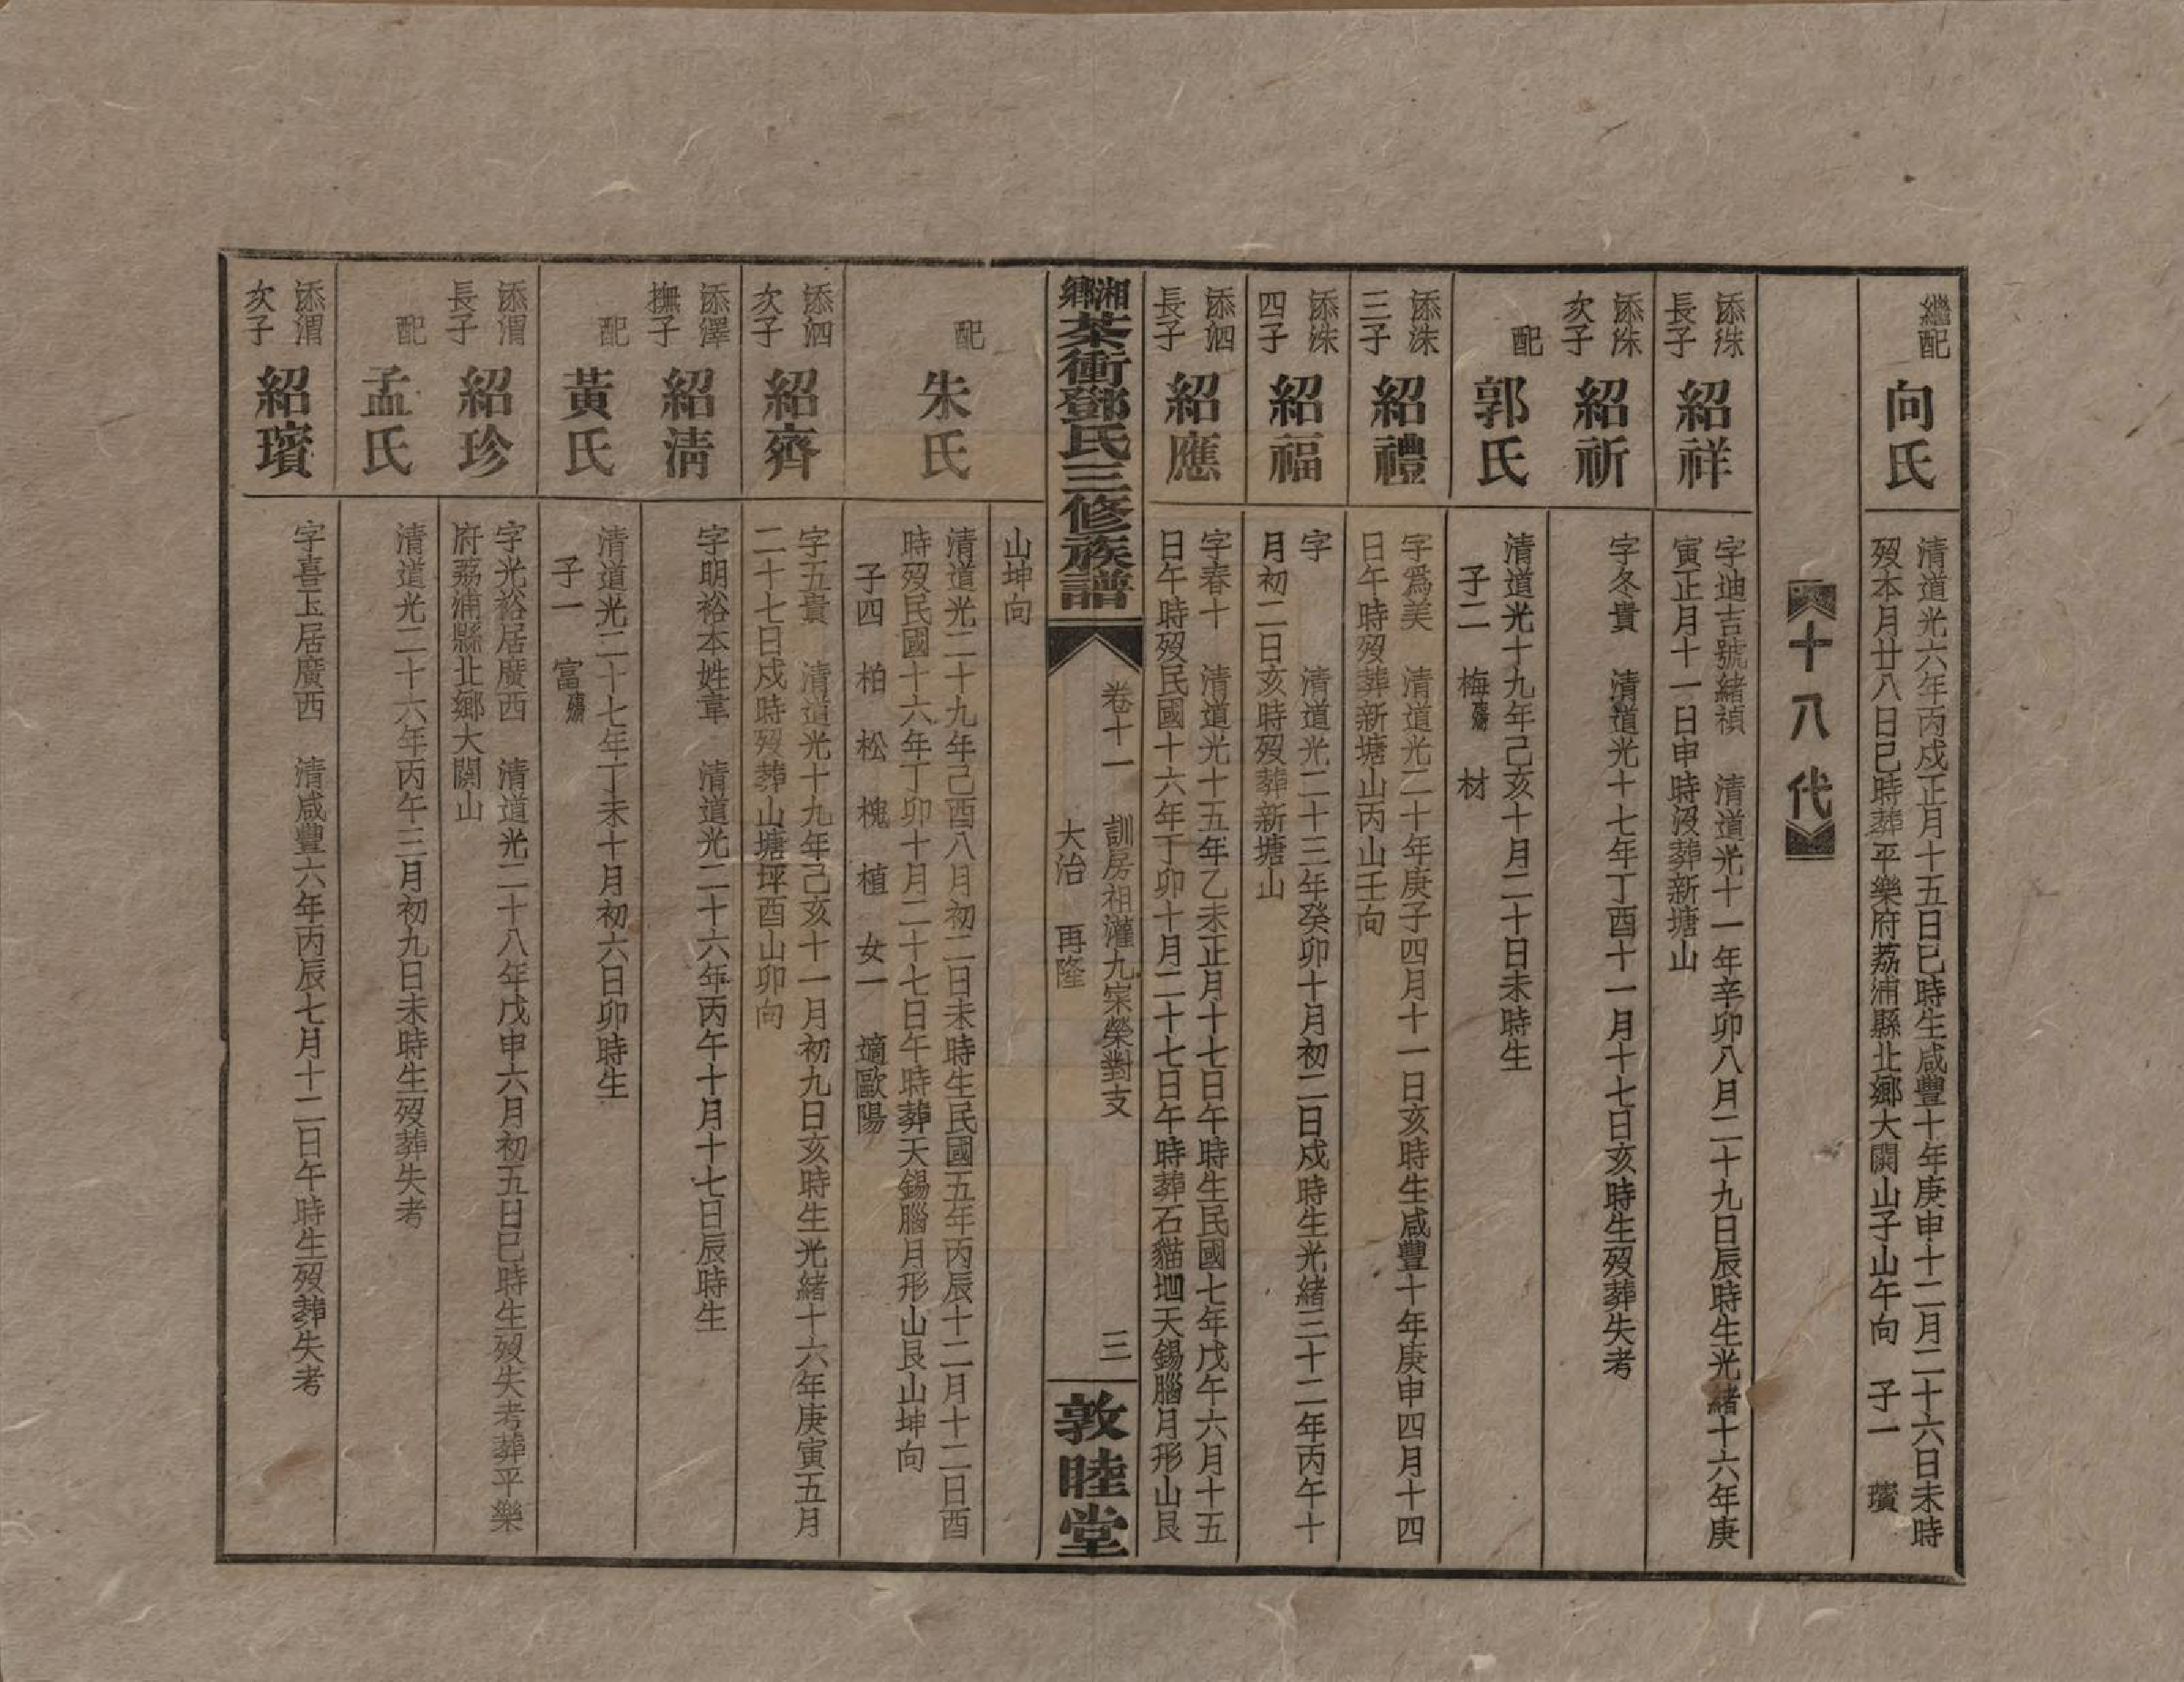 繼配
向氏
清道光六年丙戍正月十五日巳時生咸豐十年庚申十二月二十六日未時
歿本月廿八日巳時葬平樂府荔浦縣北鄉大開山子山午向　子一　璸
十八代
添洙
長子
紹祥
字迪吉號緒禎　清道光十一年辛卯八月二十九日辰時生光緒十六年庚
寅正月十一日申時沒葬新塘山
添洙
次子
紹祈
字冬貴　清道光十七年丁酉十一月十七日亥時生歿葬失考
配
郭氏
清道光十九年己亥十月二十日未時生
子二　梅殤　材
添洙
三子
紹禮
字為美　清道光二十年庚子四月十一日亥時生咸豐十年庚申四月十四
日午時歿葬新塘山丙山壬向
添洙
四子
紹福
字　　清道光二十三年癸卯十月初二日戍時生光緒三十二年丙午十
月初二日亥時歿葬新塘山
添泗
長子
紹應
字春十　清道光十五年乙未正月十七日午時生民國七年戊午六月十五
日午時歿民國十六年丁卯十月二十七日午時葬石貓坳天錫腦月形山艮
湘鄉茶衝鄧氏三修族譜
卷十一　訓房祖灌九寀榮對支
大治　再隆
三
敦睦堂
山坤向
配
朱氏
清道光二十九年己酉八月初二日未時生民國五年丙辰十二月十二日酉
時歿民國十六年丁卯十月二十七日午時葬天錫腦月形山艮山坤向
子四　柏　松　槐　植　女一　適歐陽
添泗
次子
紹齊
字五貴　清道光十九年己亥十一月初九日亥時生光緒十六年庚寅五月
二十七日戍時歿葬山塘坪酉山卯向
添澤
撫子
紹清
字明裕本姓韋　清道光二十六年丙午十月十七日辰時生
配
黃氏
清道光二十七年丁未十月初六日卯時生
子一　富殤
添渭
長子
紹珍
字光裕居廣西　清道光二十八年戊申六月初五日巳時生歿失考葬平樂
府荔浦縣北鄉大開山
配
孟氏
清道光二十六年丙午三月初九日未時生歿葬失考
添渭
次子
紹璸
字喜玉居廣西　清咸豐六年丙辰七月十二日午時生歿葬失考